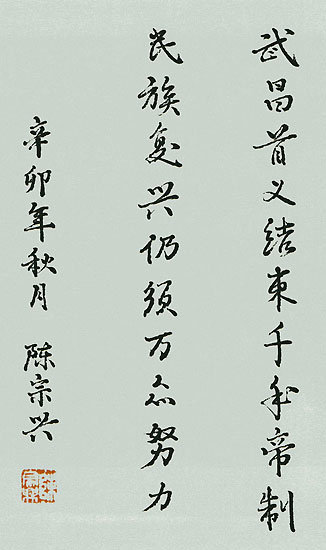 武昌首义结束千年帝制
民族复兴仍须万众努力
辛卯年秋月 陈宗兴